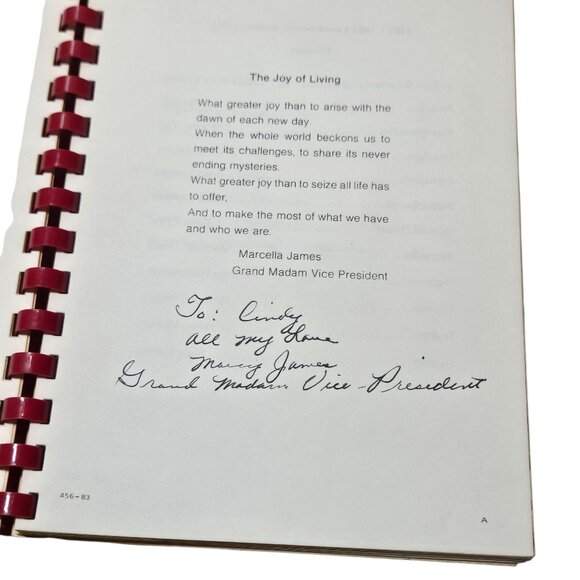 The Joy of Living
What greater joy than to arise with the
dawn of each new day.
When the whole world beckons us to
meet its challenges, to share its never
ending mysteries.
What greater joy than to seize all life has
to offer,
And to make the most of what we have
and who we are.
Marcella James
Grand Madam Vice President
To: Cindy
all my Love
Marcy James
Grand Madam Vice-President
456-83
A